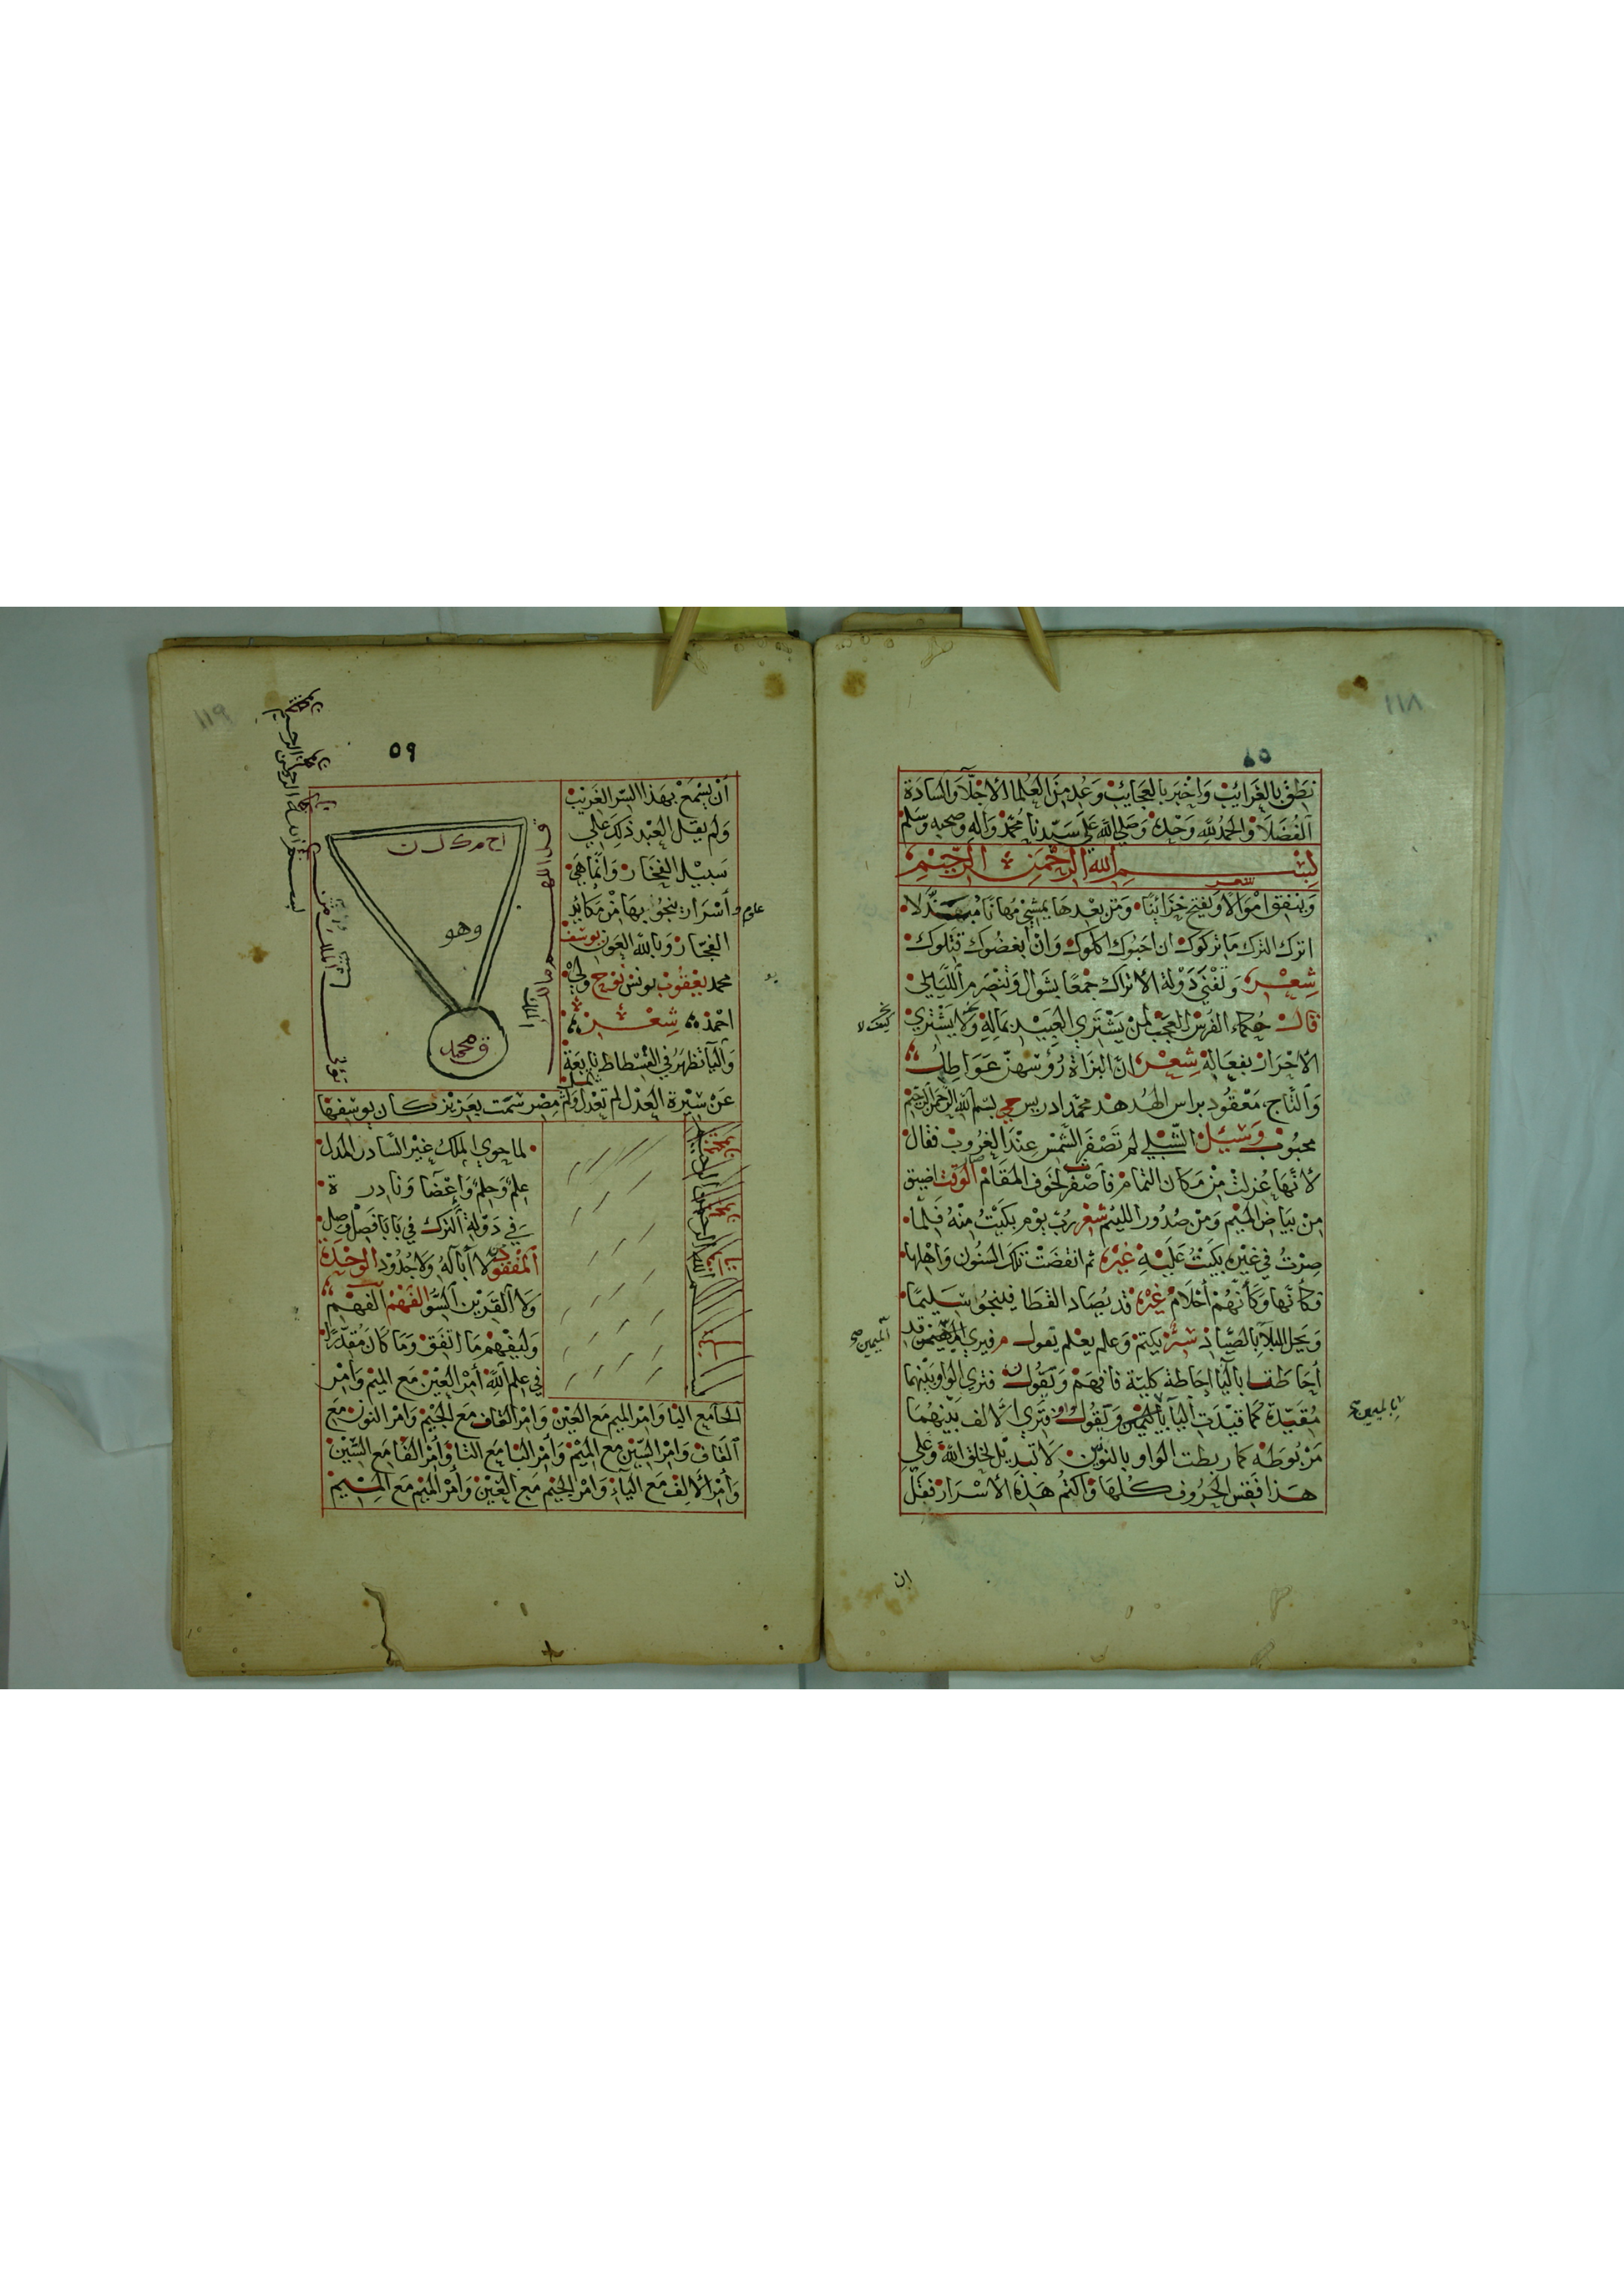 نطق بالغرايب واخبر بالعجايب وعد من العلما الاجلا والسادة
الفضلا والحمد لله وحده وصلي الله علي سيدنا محمد واله وصحبه وسلم
بسم الله الرحمن الرحيم
شعر
وينفق اموالا ويفتح خزاينا ومن بعدها يمشي مهانا
اترك الترك ما تركوك ان احبوك اكلوك وان ابغضوك قتلوك
شعر وتفني دولة الاتراك جمعا بشوال وتنصرم الليالي
قال حكماء الفرس العجب لمن يشتري العبيد بماله ولا يشتري
الاحرار بفعاله شعر ان البزاة رؤسهن عواطل
والتاج معقود براس الهدهد محمد ادريس حي بسم الله الرحمن الرحيم
محبوب وسيل الشبلي لم تصفر الشمس عند الغروب فقال
لانها عزلت من مكان التمام فاصفرت لخوف المقام الوقت اضيق
من بياض الميم ومن صدور الليم شعر رب يوم بكيت منه فلما
صرت في غيره بكيت عليه غيره ثم انقضت تلك السنون واهلها
فكانها وكانهم احلام غيره قد يصاد القطا فينجو سليما
ويحل البلا بالصياد سر يكتم وعلم يعلم تقول م فيري قد
احاطتا باليا احاطة كلية فافهم وتقول ن فتري الواو بينهما
مقيدة كما قيدت اليا بالميمين وتقول واو فتري الالف بينهما
مربوطة كما ربطت الواو بالنونين لا تبديل لخلق الله وعلي
هذا فقس الحروف كلها واكتم هذه الاسرار فقل
الميمين صح
ان
١١٩
٥٩
ان يسمع بهذا السر الغريب
ولم يقل العبد ذلك علي
سبيل الفخار وانما هي
اسرار ينجو بها من مكايد
علوم و
الفجار وبالله العون يوسف
محمد يعقوب يونس نوح ولي
احمد شعر
واليا تظهر في الفسطاط تابعة
عن سيرة العدل لم تعدل ولم تمل
مصر سمت بعزيز كان يوسفها
ا ح م ك ل ن
وهو
ق محمد
لما حوي الملك غير السادر المدل
علم وحلم واعضا ونادرة
في دولة الترك في بابا فصل وصل
المفقود لا ابا له ولا جدود الوحدة
ولا القرين السو الفهم الفهم
وليفهم ما اتفق وما كان مقدرا
في علم الله امر العين مع الميم وامر
الحا مع اليا وامر الميم مع العين وامر القاف مع الجيم وامر النون مع
القاف وامر السين مع الميم وامر البا مع التا وامر الفا مع السين
وامر الالف مع الياء وامر الجيم مع العين وامر الميم مع الميم